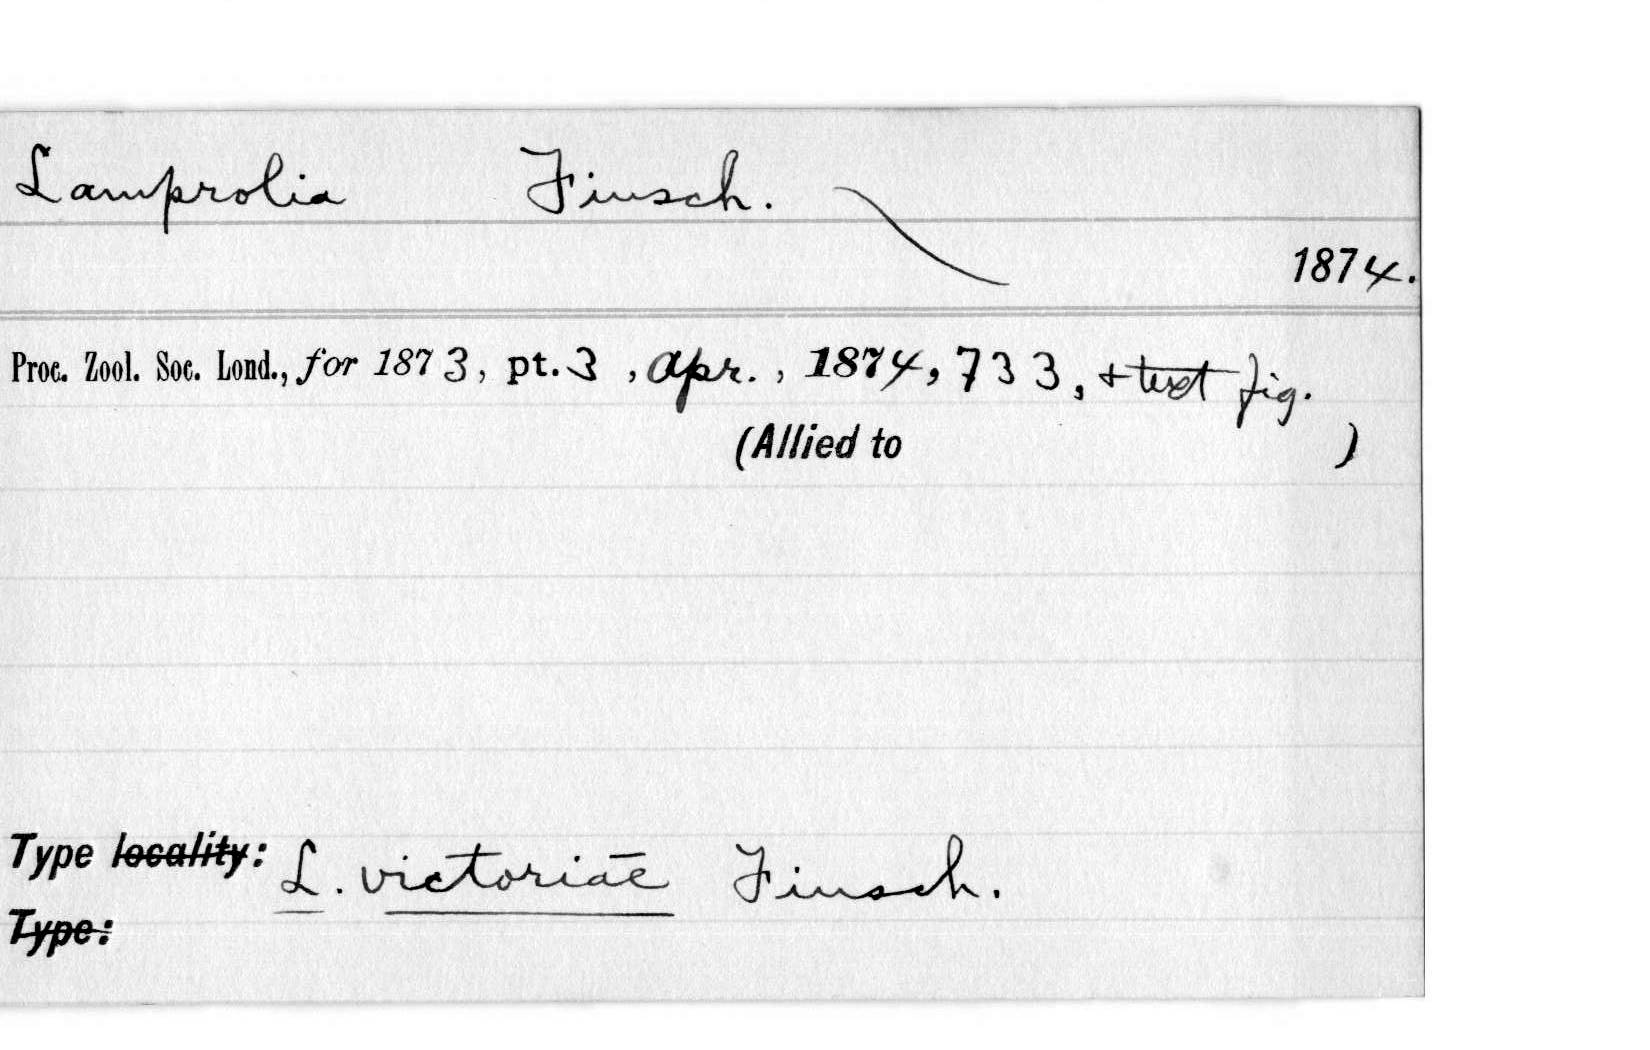 Lamprolia Finsch.
1874.
Proc. Zool. Soc. Lond., for 1873, pt. 3, Apr., 1874, 733, + text fig.
(Allied to )
Type locality: L. victoriae Finsch.
Type: